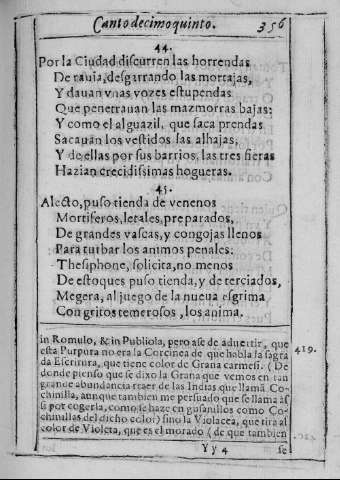 Canto decimoquinto. 356
44.
Por la Ciudad discurren las horrendas
De rauia, desgarrando las mortajas,
Y dauan vnas vozes estupendas
Que penetrauan las mazmorras bajas:
Y como el alguazil, que saca prendas
Sacauan los vestidos las alhajas,
Y de ellas por sus barrios, las tres fieras
Hazian crecidissimas hogueras.
45.
Alecto, puso tienda de venenos
Mortiferos, letales, preparados,
De grandes vascas, y congojas llenos
Para turbar los animos penales:
Thesiphone, solicita, no menos
De estoques puso tienda, y de terciados,
Megera, al juego de la nueua esgrima
Con gritos temerosos, los anima.
in Romulo, & in Publiola, pero ase de aduertir, que
esta Purpura no era la Corcinea de que habla la sagra
da Escritura, que tiene color de Grana carmesi. (De
donde pienso que se dixo la Grana que vemos en tan
grande abundancia traer de las Indias que llamã Co-
chinilla, aunque tambien me persuado que se llama as
si por cogerla, como se haze en gusanillos como Co-
chinillas del dicho color) sino la Violacea, que tira al
color de Violeta, que es el morado (de que tambien
419.
Yy 4 se